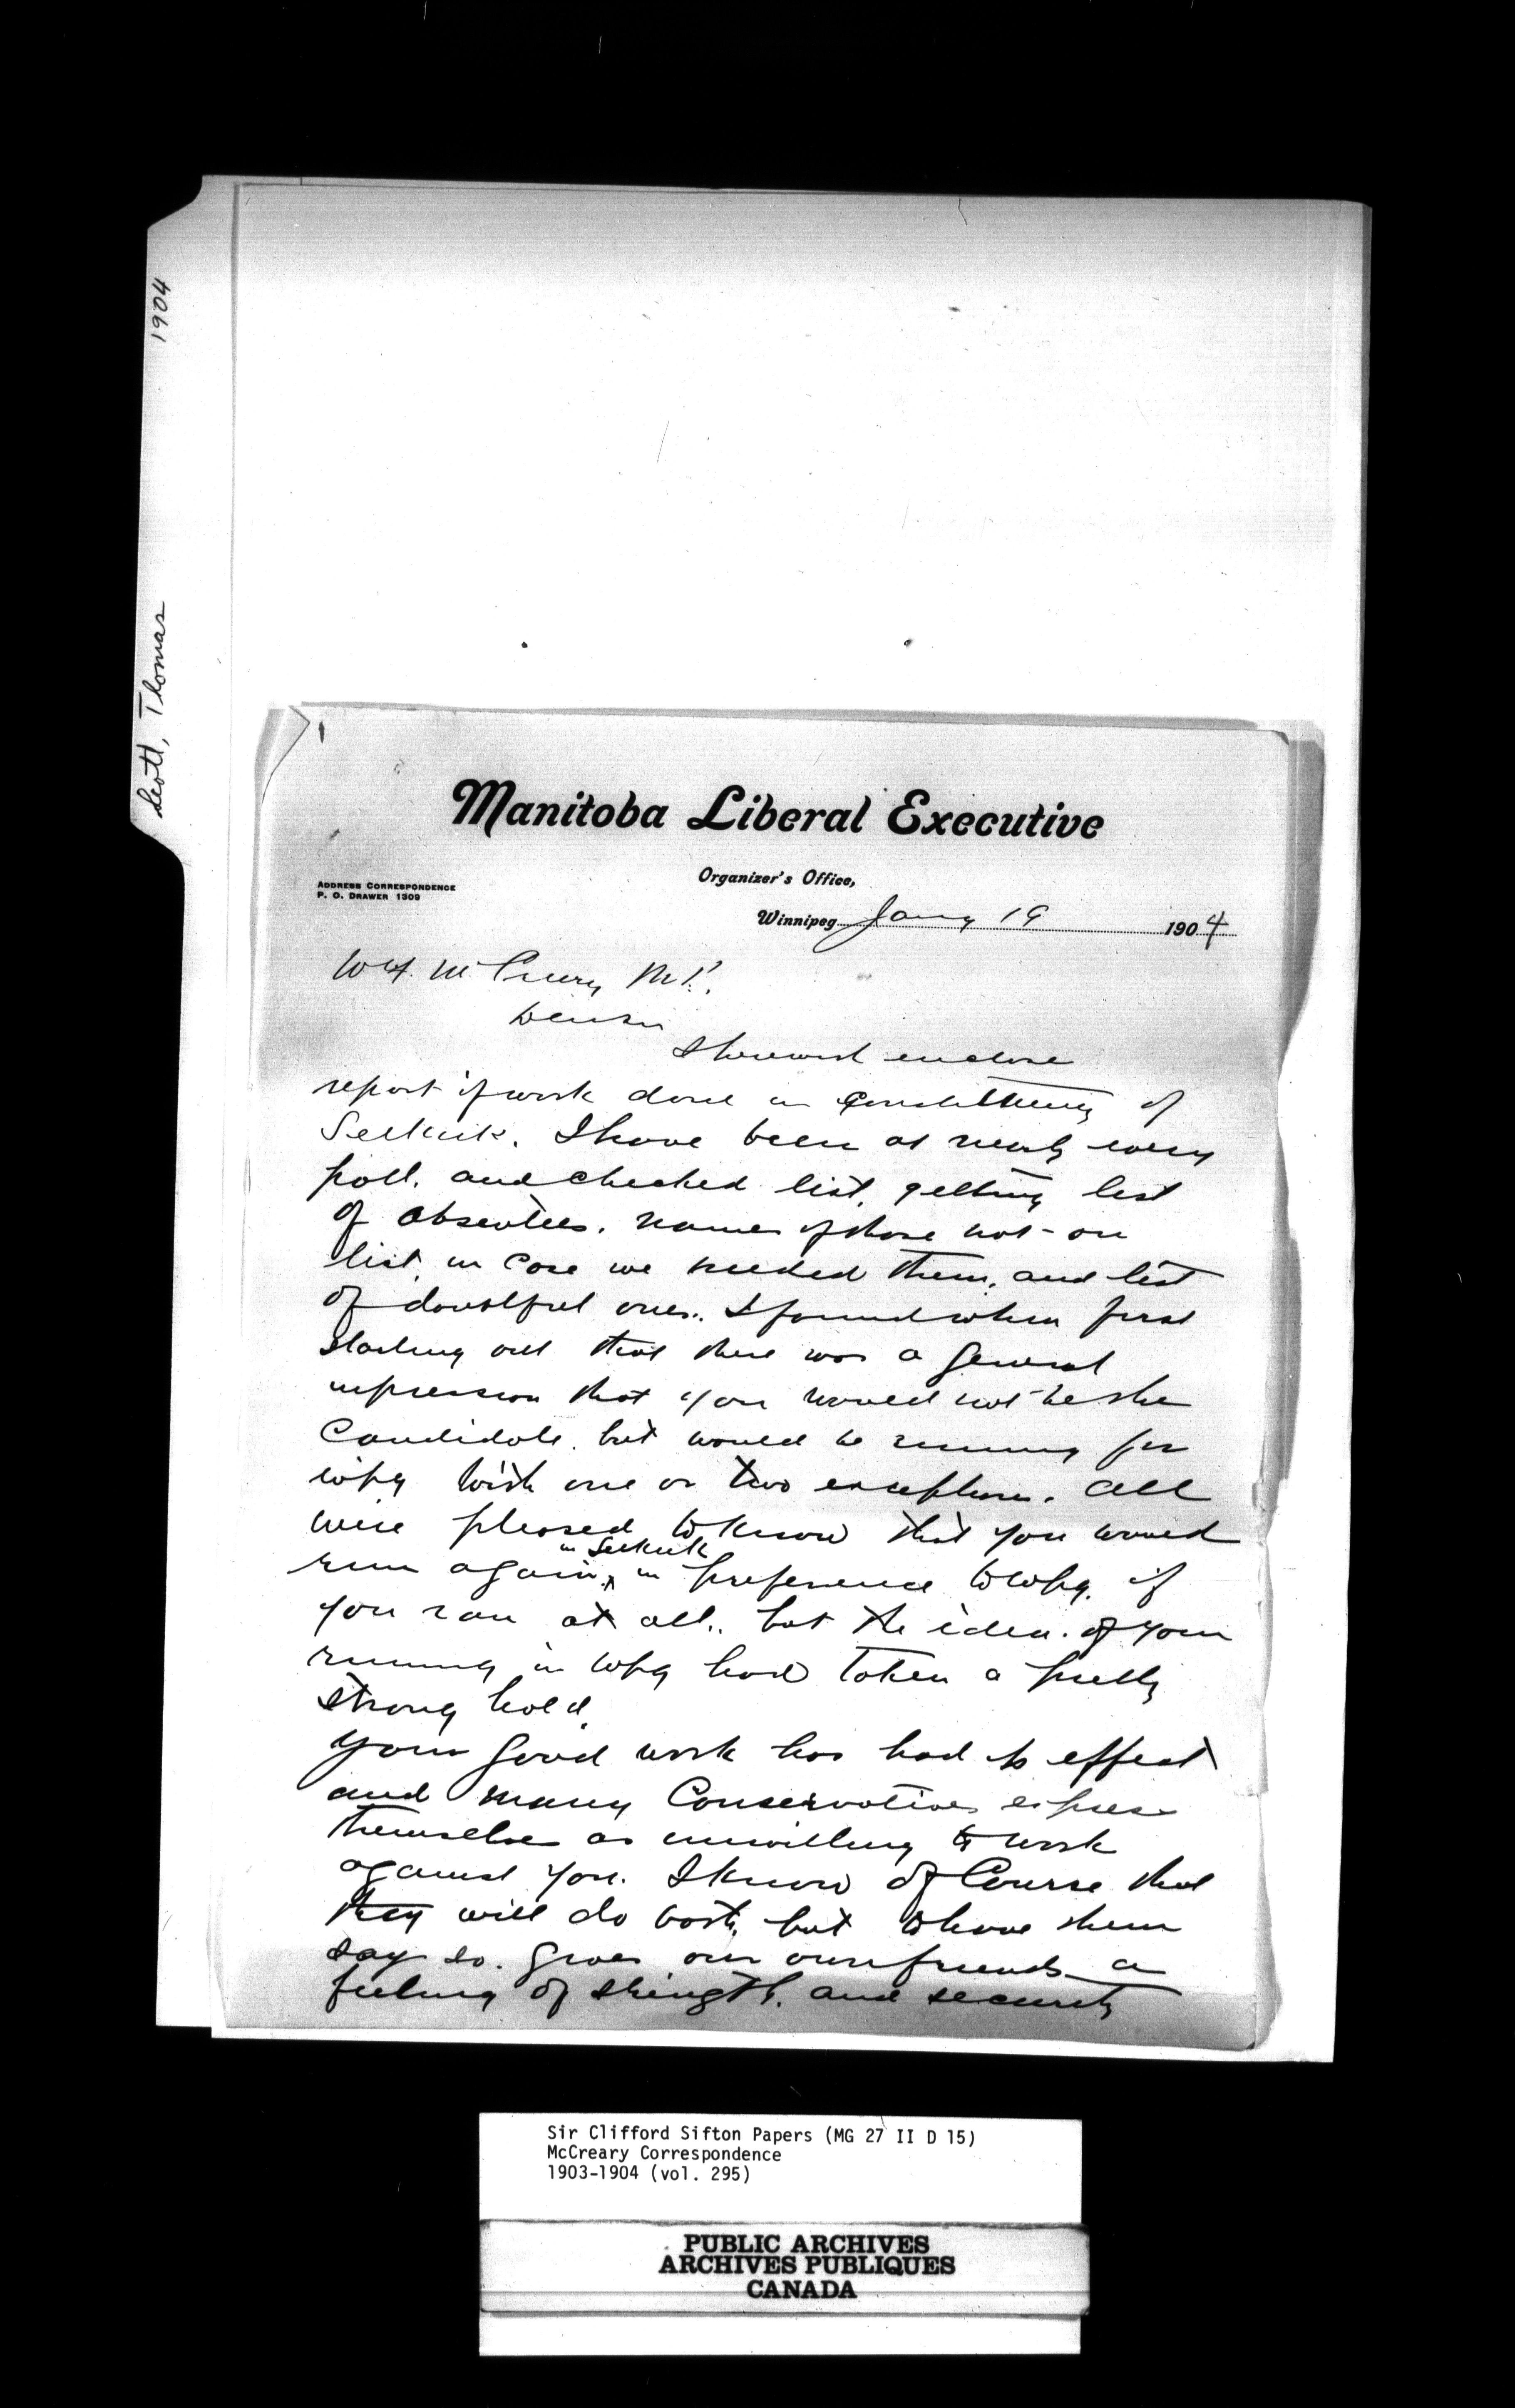 1904
Scott, Thomas
Manitoba Liberal Executive
Organizer's Office,
ADDRESS CORRESPONDENCE
P. O. DRAWER 1309
Winnipeg Jany 19 1904
W.F. McCreary M.P.
Dear Sir
I herewith enclose
report of work done in Constituency of
Selkirk. I have been at nearly every
poll. and checked list, getting list
of absentees. names of those not on
list, in case we needed them, and list
of doubtful ones. I found when first
starting out that there was a general
impression that you would not be the
Candidate. but would be running for
Wpg with one or two exceptions. All
were pleased to know that you would
run again in Selkirk in preference to Wpg. if
you ran at all.. but the idea. of your
running in Wpg had taken a pretty
strong hold.
Your good work has had its effect
and many Conservatives express
themselves as unwilling to work
against you. I know of Course that
they will do both. but to have them
say so. gives our own friends a
feeling of strength. and security
Sir Clifford Sifton Papers (MG 27 II D 15)
McCreary Correspondence
1903-1904 (vol. 295)
PUBLIC ARCHIVES
ARCHIVES PUBLIQUES
CANADA